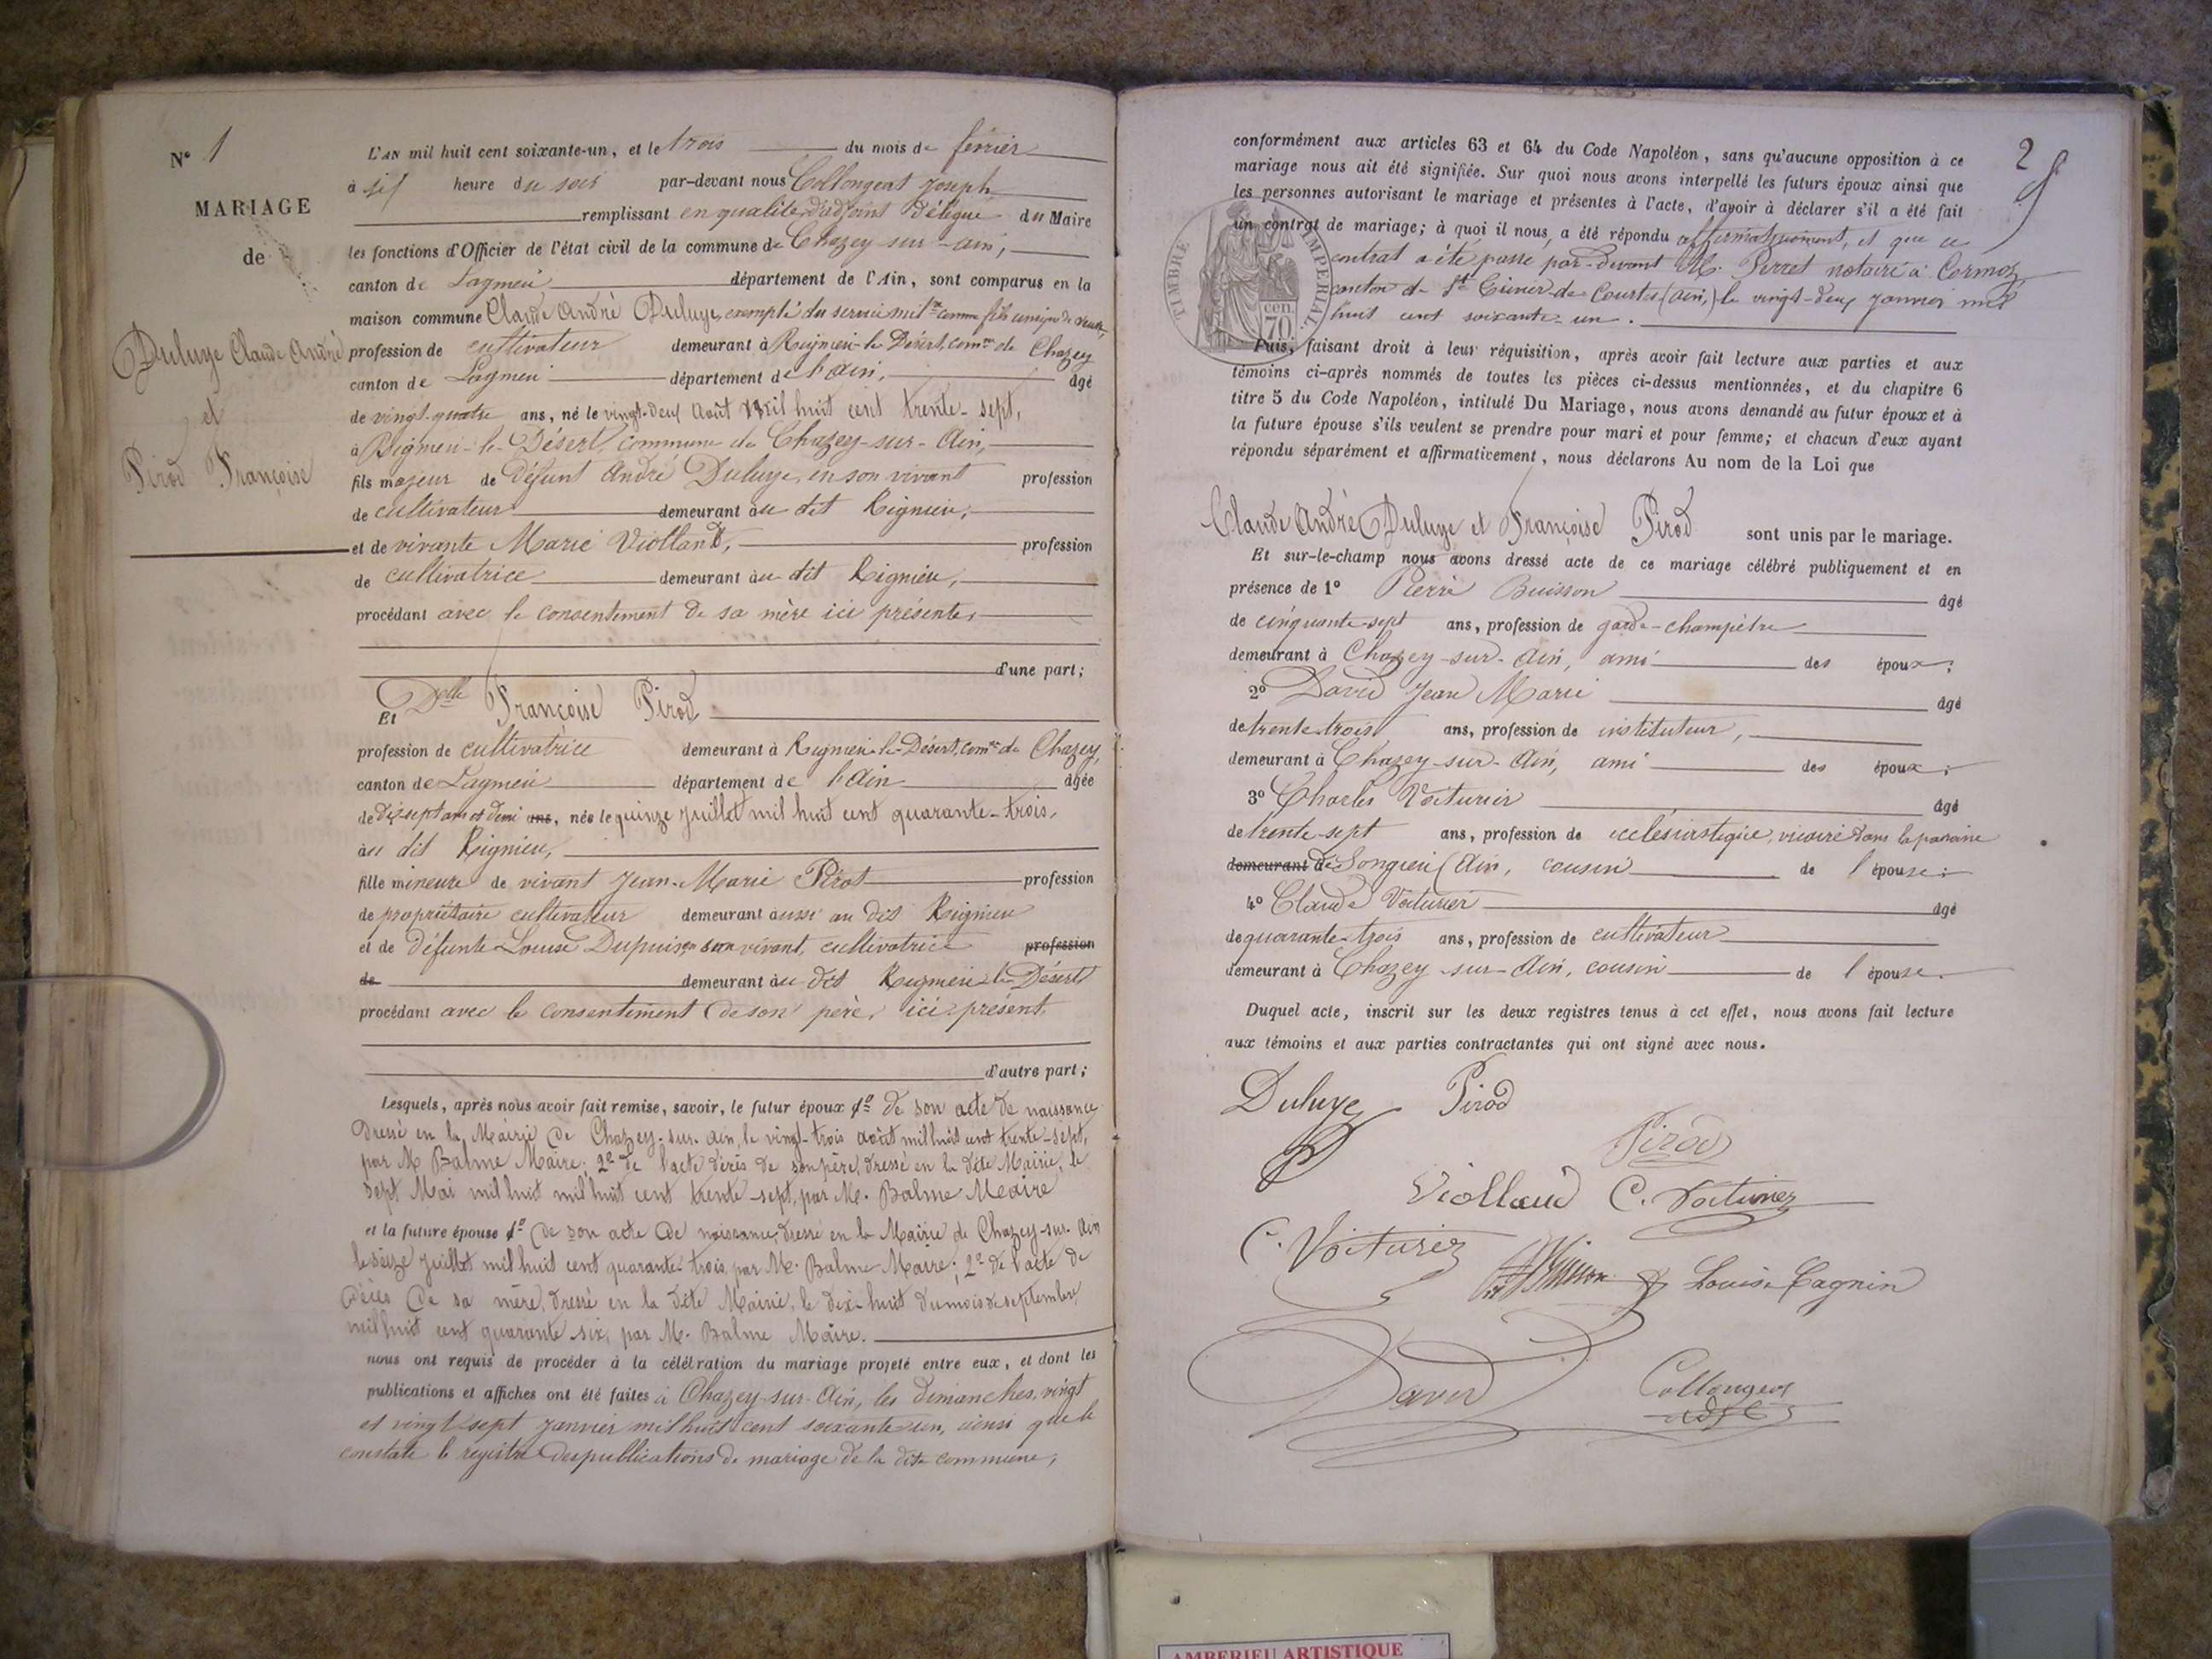 N° 1
MARIAGE
de
Duluye Claude André
et
Pirod Françoise
L'AN mil huit cent soixante-un, et le trois du mois de février
à six heure du soir par-devant nous Collongeat Joseph
remplissant en qualité d'adjoint délégué du Maire
les fonctions d'Officier de l'état civil de la commune de Chazey-sur-Ain,
canton de Lagnieu département de l'Ain, sont comparus en la
maison commune Claude André Duluye, exempté du service milre comme fils unique de veuve,
profession de cultivateur demeurant à Rignieu-le-Désert, comne de Chazey
canton de Lagnieu département de l'Ain, âgé
de vingt-quatre ans, né le vingt-deux Août mil huit cent trente-sept,
à Rignieu-le-Désert, commune de Chazey-sur-Ain,
fils majeur de défunt André Duluye, en son vivant profession
de cultivateur demeurant au dit Rignieu,
et de vivante Marie Violland, profession
de cultivatrice demeurant au dit Rignieu,
procédant avec le consentement de sa mère ici présente,
d'une part;
Et Delle Françoise Pirod
profession de cultivatrice demeurant à Rignieu-le-Désert, comne de Chazey,
canton de Lagnieu département de l'Ain âgée
de dix sept ans et demi ans, née le quinze juillet mil huit cent quarante-trois,
au dit Rignieu,
fille mineure de vivant Jean-Marie Pirot profession
de propriétaire cultivateur demeurant aussi au dit Rignieu
et de défunte Louise Dupuis, en son vivant, cultivatrice profession
de demeurant au dit Rignieu-le-Désert
procédant avec le consentement de son père, ici présent.
d'autre part;
Lesquels, après nous avoir fait remise, savoir, le futur époux 1° de son acte de naissance
dressé en la Mairie de Chazey-sur-Ain, le vingt-trois août mil huit cent trente-sept,
par M. Balme Maire; 2° de l'acte décès de son père, dressé en la dite Mairie, le
sept Mai mil huit mil huit cent trente-sept, par M. Balme Maire
et la future épouse 1° de son acte de naissance, dressé en la Mairie de Chazey-sur-Ain
le seize juillet mil huit cent quarante-trois, par M. Balme Maire; 2° de l'acte de
décès de sa mère, dressé en la dite Mairie, le dix-huit du mois de septembre
mil huit cent quarante six, par M. Balme Maire.
nous ont requis de procéder à la célébration du mariage projeté entre eux, et dont les
publications et affiches ont été faites à Chazey-sur-Ain, les dimanches, vingt
et vingt-sept janvier mil huit cent soixante-un, ainsi que le
constate le registre des publications de mariage de la dite commune,
2
conformément aux articles 63 et 64 du Code Napoléon, sans qu'aucune opposition à ce
mariage nous ait été signifiée. Sur quoi nous avons interpellé les futurs époux ainsi que
les personnes autorisant le mariage et présentes à l'acte, d'avoir à déclarer s'il a été fait
un contrat de mariage; à quoi il nous a été répondu affirmativement, et que ce
contrat a été passé par-devant M. Perret notaire à Cormoz
canton de St Trivier-de-Courtes (Ain,) le vingt-deux janvier mil
huit cent soixante-un.
TIMBRE IMPERIAL
70 cen.
Puis, faisant droit à leur réquisition, après avoir fait lecture aux parties et aux
témoins ci-après nommés de toutes les pièces ci-dessus mentionnées, et du chapitre 6
titre 5 du Code Napoléon, intitulé Du Mariage, nous avons demandé au futur époux et à
la future épouse s'ils veulent se prendre pour mari et pour femme; et chacun d'eux ayant
répondu séparément et affirmativement, nous déclarons Au nom de la Loi que
Claude André Duluye et Françoise Pirod sont unis par le mariage.
Et sur-le-champ nous avons dressé acte de ce mariage célébré publiquement et en
présence de 1° Pierre Buisson âgé
de cinquante-sept ans, profession de garde-champêtre
demeurant à Chazey-sur-Ain, ami des époux;
2° David Jean Marie âgé
de trente-trois ans, profession de instituteur,
demeurant à Chazey-sur-Ain, ami des époux;
3° Charles Voiturier âgé
de trente-sept ans, profession de ecclésiastique, vicaire dans la paroisse
demeurant de Songieu (Ain, cousin de l'épouse;
4° Claude Voiturier âgé
de quarante-trois ans, profession de cultivateur
demeurant à Chazey-sur-Ain, cousin de l'épouse.
Duquel acte, inscrit sur les deux registres tenus à cet effet, nous avons fait lecture
aux témoins et aux parties contractantes qui ont signé avec nous.
Duluye Pirod
Pirod
Viollaud C. Voiturier
C. Voiturier
Buisson Louise Cagnin
David Collongeat
adjt
AMBERIEU ARTISTIQUE